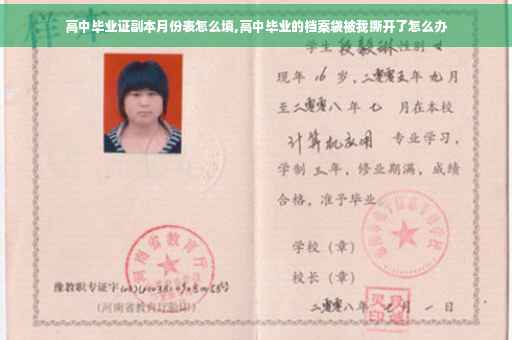 高中毕业证副本月份表怎么填,高中毕业的档案袋被我撕开了怎么办
样本
学生 段毅琳 性别 女
现年 16 岁,二零零五年 九月
至二零零八 年 七 月在本校
计算机应用 专业学习,
学制 三 年,修业期满,成绩
合格,准予毕业
学校(章)
校长(章)
二零零八年 七 月 一 日
河南省教育厅
豫教职专证字
(河南省教育厅验印)